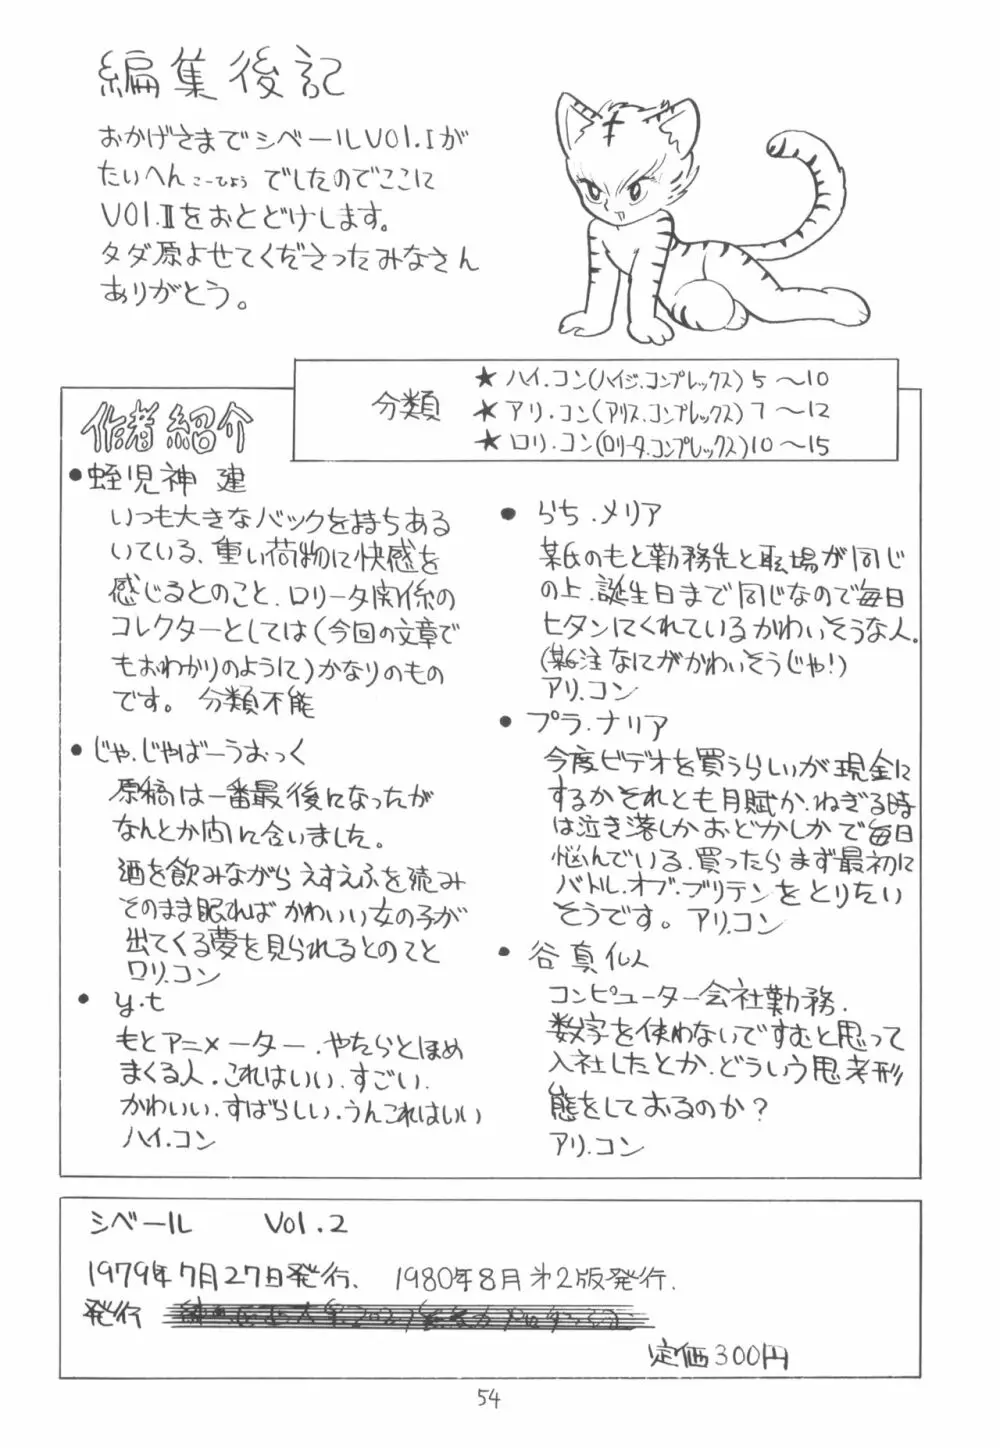 編集後記
おかげさまでシベールVOl.Iが
たいへんこーひょうでしたのでここに
VOl.Ⅱをおとどけします。
タダ原よせてくださったみなさん
ありがとう。
分類
★ハイ.コン(ハイジ.コンプレックス)5〜10
★アリ.コン(アリス.コンプレックス)7〜12
★ロリ.コン(ロリータ.コンプレックス)10〜15
作者紹介
●蛭児神 建
いつも大きなバックを持ちある
いている、重い荷物に快感を
感じるとのこと、ロリータ関係の
コレクターとしては(今回の文章で
もおわかりのように)かなりのもの
です。 分類不能
●じゃ.じゃばーうおっく
原稿は一番最後になったが
なんとか間に合いました。
酒を飲みながらえすえふを読み
そのまま眠ればかわいい女の子が
出てくる夢を見られるとのてと
ロリ.コン
●y.t
もとアニメーター.やたらとほめ
まくる人.これはいい.すごい.
かわいい.すばらしい.うんこれはいい
ハイ.コン
●らち.メリア
某氏のもと勤務先と職場が同じ
の上.誕生日まで同じなので毎日
ヒタンにくれているかわいそうな人。
(某注なにがかわいそうじゃ!)
アリ.コン
●プラ.ナリア
今度ビデオを買うらしいが現金に
するかそれとも月賦か.ねぎる時
は泣き落しかおどかしかで毎日
悩んでいる.買ったらまず最初に
バトル.オブ.ブリテンをとりたい
そうです。アリ.コン
●谷 真仏人
コンピューター会社勤務.
数字を使わないですむと思って
入社したとか.どういう思考形
態をしておるのか?
アリ.コン
シベール Vol.2
1979年7月27日発行、1980年8月オ2版発行.
発行
定価300円
54